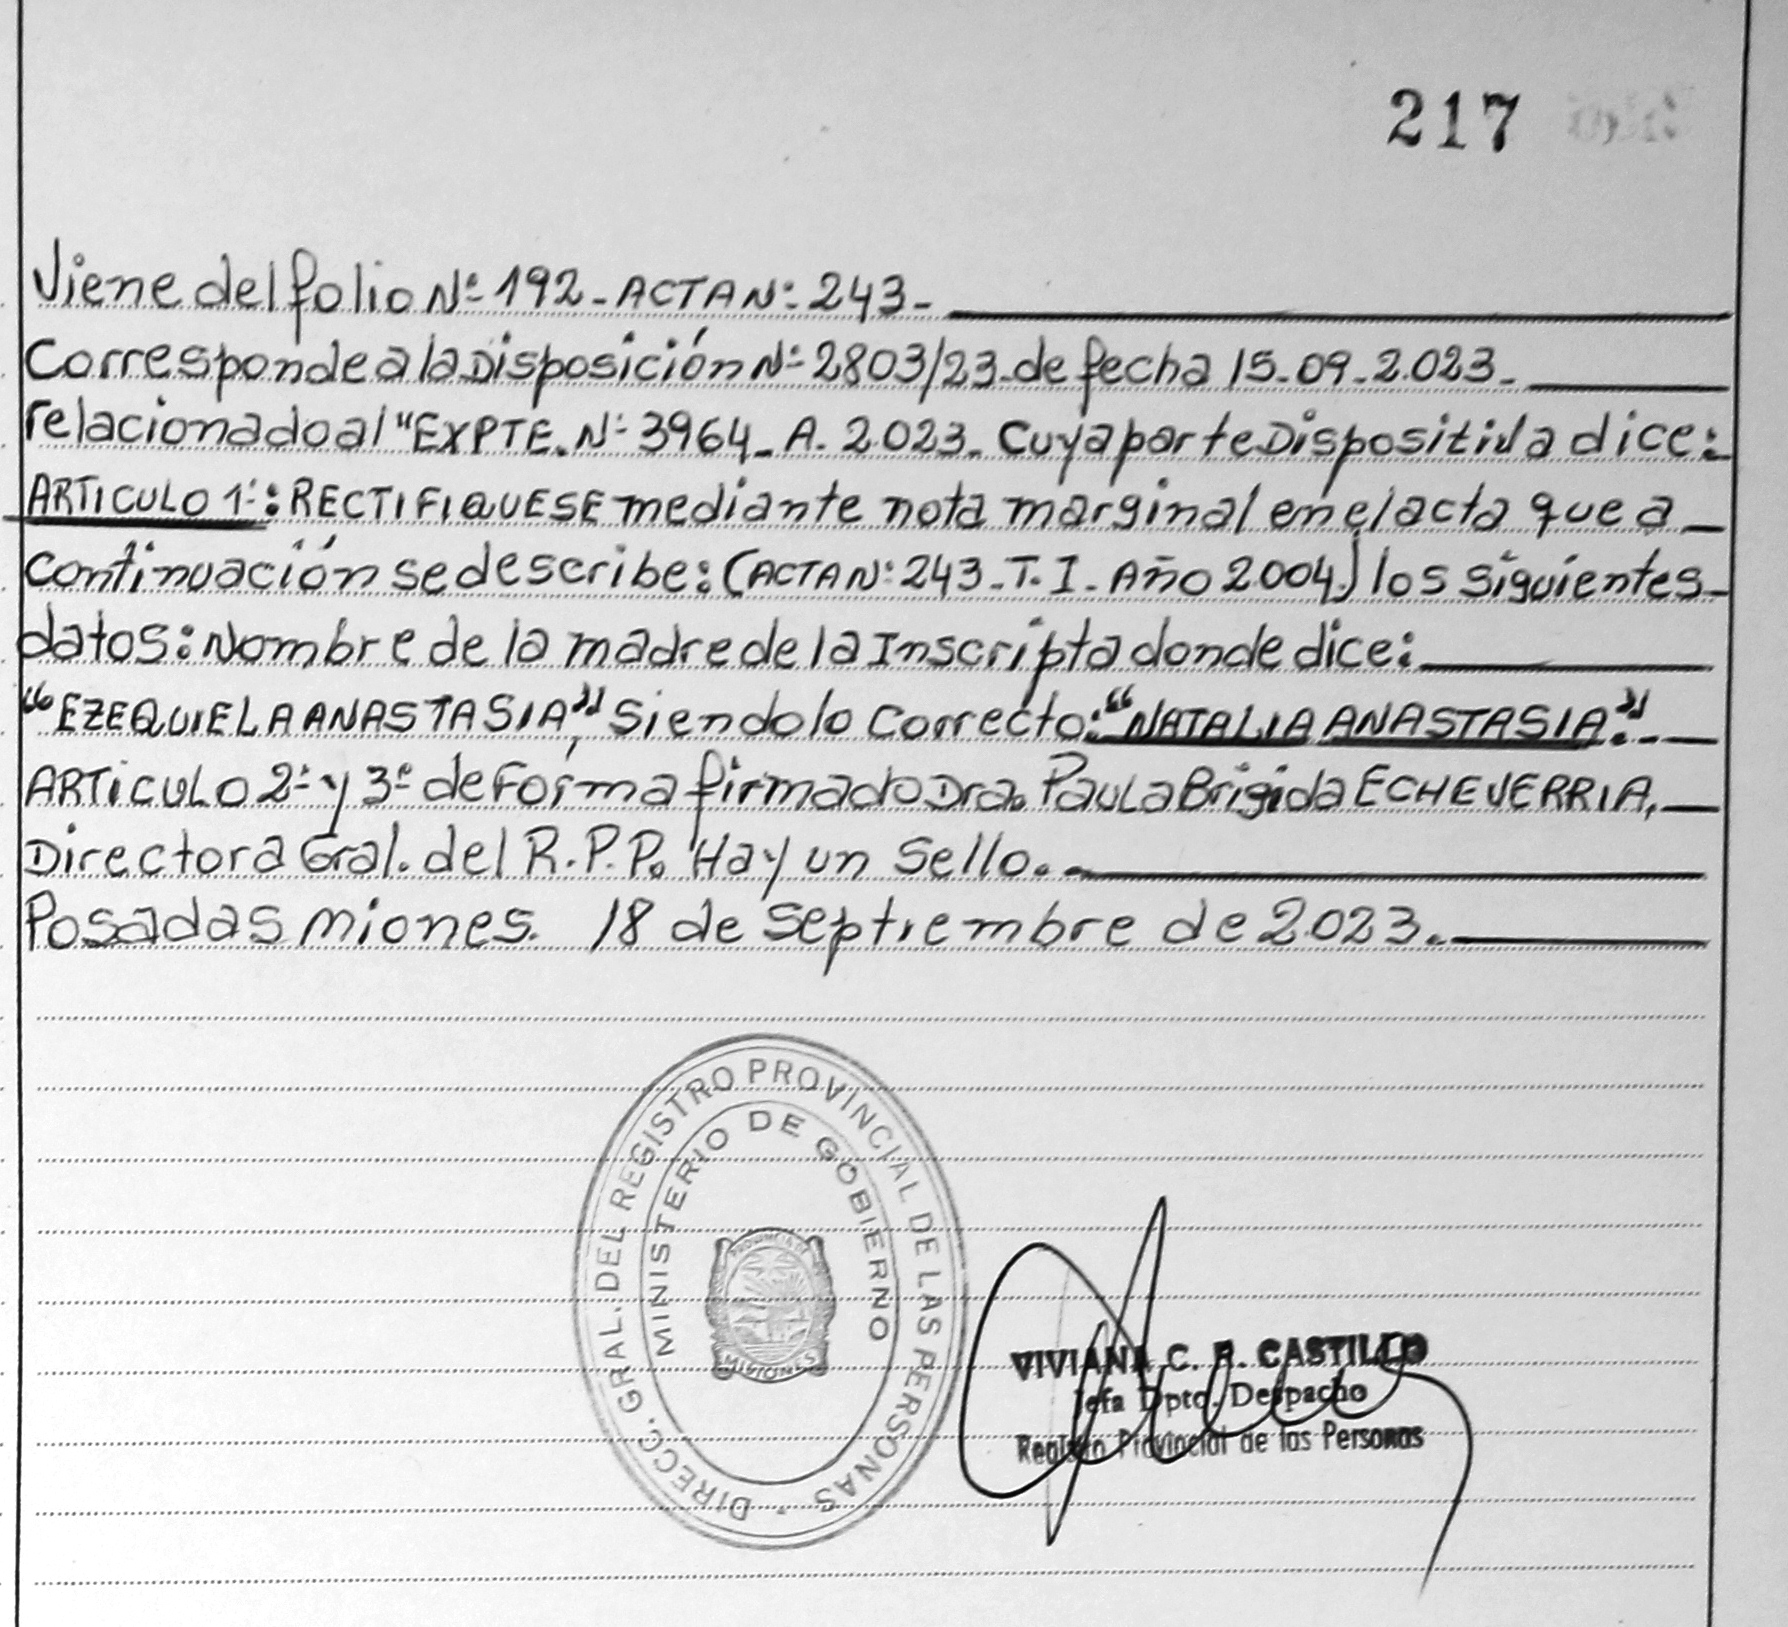 217
Viene del folio Nº 192 - ACTA Nº: 243 -
Corresponde a la Disposición Nº 2803/23 - de fecha 15-09-2.023 -
relacionado al "EXPTE. Nº 3964 - A - 2.023 - Cuya parte Dispositiva dice:
ARTICULO 1º: RECTIFIQUESE mediante nota marginal en el acta que a
Continuación se describe: (ACTA Nº: 243 - T. I - Año 2004) los siguientes
datos: Nombre de la madre de la Inscripta donde dice:
"EZEQUIELA ANASTASIA", Siendo lo Correcto: "NATALIA ANASTASIA".-
ARTICULO 2º y 3º de Forma firmado Dra. Paula Brigida ECHEVERRIA,
Directora Gral. del R.P.P. Hay un Sello.-
Posadas miones. 18 de Septiembre de 2.023.-
DIRECC. GRAL. DEL REGISTRO PROVINCIAL DE LAS PERSONAS
MINISTERIO DE GOBIERNO
PROVINCIA DE
MISIONES
VIVIANA C. R. CASTILLO
Jefa Dpto. Despacho
Registro Provincial de las Personas